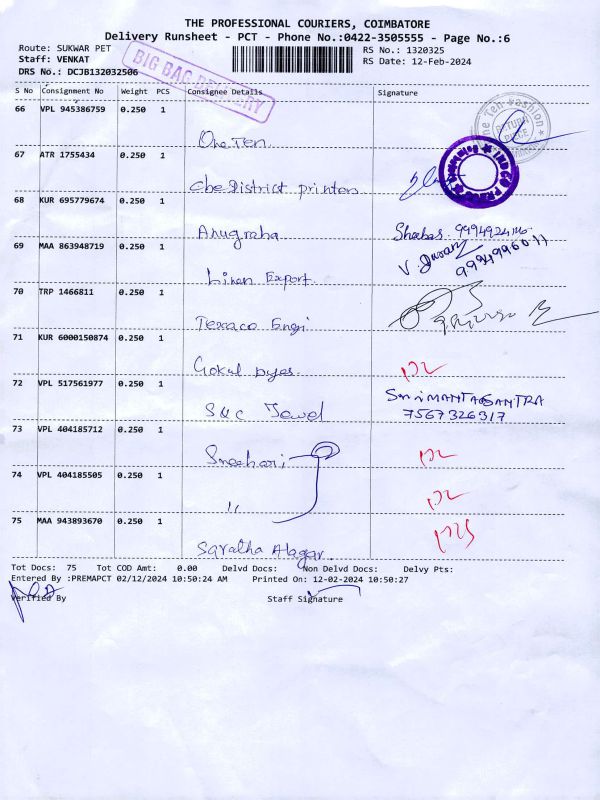 THE PROFESSIONAL COURIERS, COIMBATORE
Delivery Runsheet - PCT - Phone No.:0422-3505555 - Page No.:6
Route: SUKWAR PET
Staff: VENKAT
DRS No.: DCJB132032506
RS No.: 1320325
RS Date: 12-Feb-2024
BIG BAG DELIVERY
S No Consignment No Weight PCS Consignee Details Signature
66 VPL 945386759 0.250 1 One Ten
One Ten Fashion
67 ATR 1755434 0.250 1 Cbe District printers
68 KUR 695779674 0.250 1 Anugraha
69 MAA 863948719 0.250 1 Linen Export. V.
9994996011
70 TRP 1466811 0.250 1 Texaco Engi
71 KUR 6000150874 0.250 1 Gokul Dyes.
72 VPL 517561977 0.250 1 Jewel
7567326317
73 VPL 404185712 0.250 1 Sreehari
74 VPL 404185505 0.250 1 "
75 MAA 943893670 0.250 1 Alagar.
Tot Docs: 75 Tot COD Amt: 0.00 Delvd Docs: Non Delvd Docs: Delvy Pts:
Entered By :PREMAPCT 02/12/2024 10:50:24 AM Printed On: 12-02-2024 10:50:27
Verified By Staff Signature